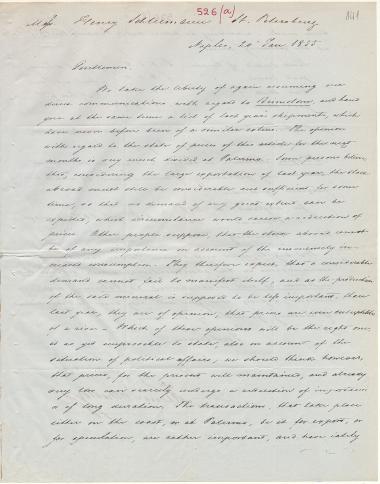 526 (a)
141
Mess Henry Schliemann St. Petersburg
Naples, 20 Jan 1855
Gentlemen.
We take the liberty of again resuming our
communications with regard to Brimstone, and hand
you at the same time a list of last year's shipments, which
have never before been of a similar extent. The opinion
with regard to the state of prices of this article for the next
months is very much divided at Palermo. Some persons believe
that, considering the large exportation of last year, the stocks
abroad must still be considerable and sufficient for some
time, so that no demand of any great extent can be
expected, which circumstance would cause a reduction of
prices. Other people suppose, that the stocks abroad cannot
be of any importance on account of the immensely in-
creased consumption. They therefore expect, that a considerable
demand cannot fail to manifest itself, and as the production
of the said mineral is supposed to be less important, than
last year, they are of opinion, that prices are even susceptible
of a rise. Which of these opinions will be the right one,
is as yet impossible to state, also on account of the
situation of political affairs, we should think however,
that prices, for the present will maintained, and already
very low can scarcely undergo a reduction of importance
or of long duration. The transactions, that take place
either on the coast, or at Palermo, be it for export, or
for speculation, are rather important, and have lately